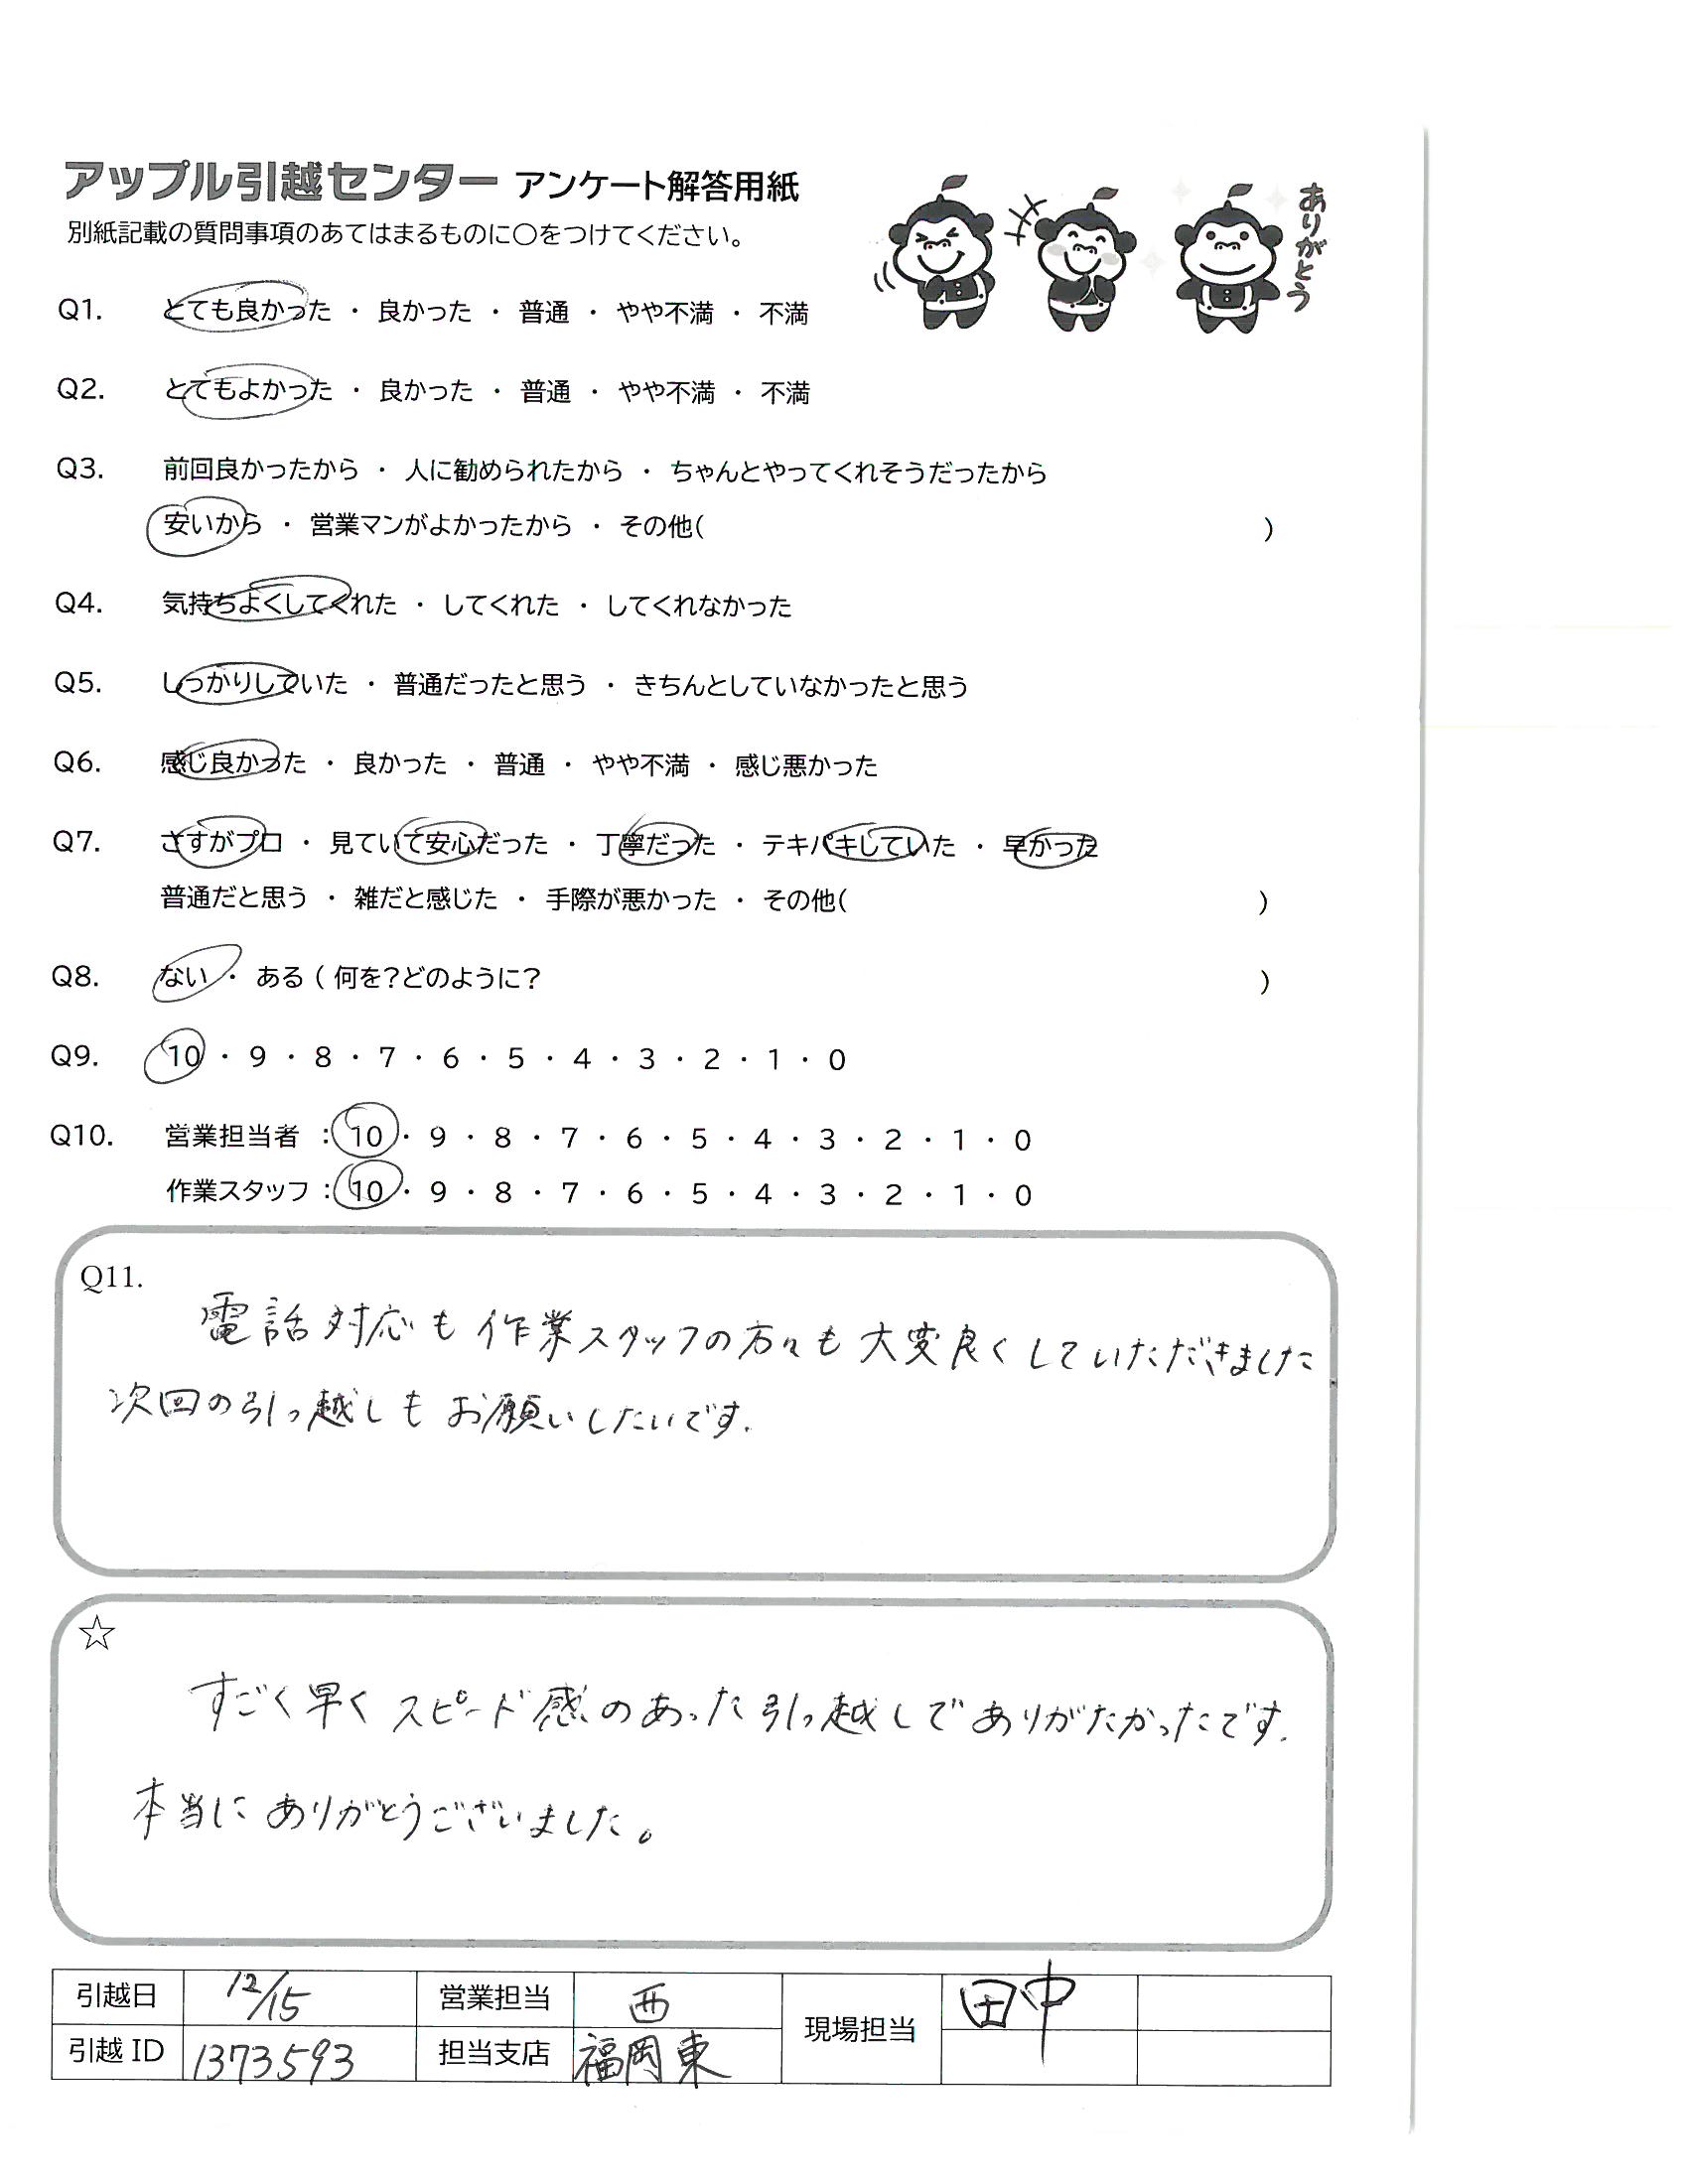 アップル引越センター アンケート解答用紙
別紙記載の質問事項のあてはまるものに〇をつけてください。
ありがとう
Q1. とても良かった ・ 良かった ・ 普通 ・ やや不満 ・ 不満
Q2. とてもよかった ・ 良かった ・ 普通 ・ やや不満 ・ 不満
Q3. 前回良かったから ・ 人に勧められたから ・ ちゃんとやってくれそうだったから
安いから ・ 営業マンがよかったから ・ その他( )
Q4. 気持ちよくしてくれた ・ してくれた ・ してくれなかった
Q5. しっかりしていた ・ 普通だったと思う ・ きちんとしていなかったと思う
Q6. 感じ良かった ・ 良かった ・ 普通 ・ やや不満 ・ 感じ悪かった
Q7. さすがプロ ・ 見ていて安心だった ・ 丁寧だった ・ テキパキしていた ・ 早かった
普通だと思う ・ 雑だと感じた ・ 手際が悪かった ・ その他( )
Q8. ない ・ ある ( 何を?どのように? )
Q9. 10 ・ 9 ・ 8 ・ 7 ・ 6 ・ 5 ・ 4 ・ 3 ・ 2 ・ 1 ・ 0
Q10. 営業担当者 : 10 ・ 9 ・ 8 ・ 7 ・ 6 ・ 5 ・ 4 ・ 3 ・ 2 ・ 1 ・ 0
作業スタッフ : 10 ・ 9 ・ 8 ・ 7 ・ 6 ・ 5 ・ 4 ・ 3 ・ 2 ・ 1 ・ 0
Q11.
電話対応も作業スタッフの方々も大変良くしていただきました
次回の引っ越しもお願いしたいです.
☆
すごく早くスピード感のあった引っ越しでありがたかったです.
本当にありがとうございました。
引越日 12/15 営業担当 西 現場担当 田中
引越 ID 1373593 担当支店 福岡東